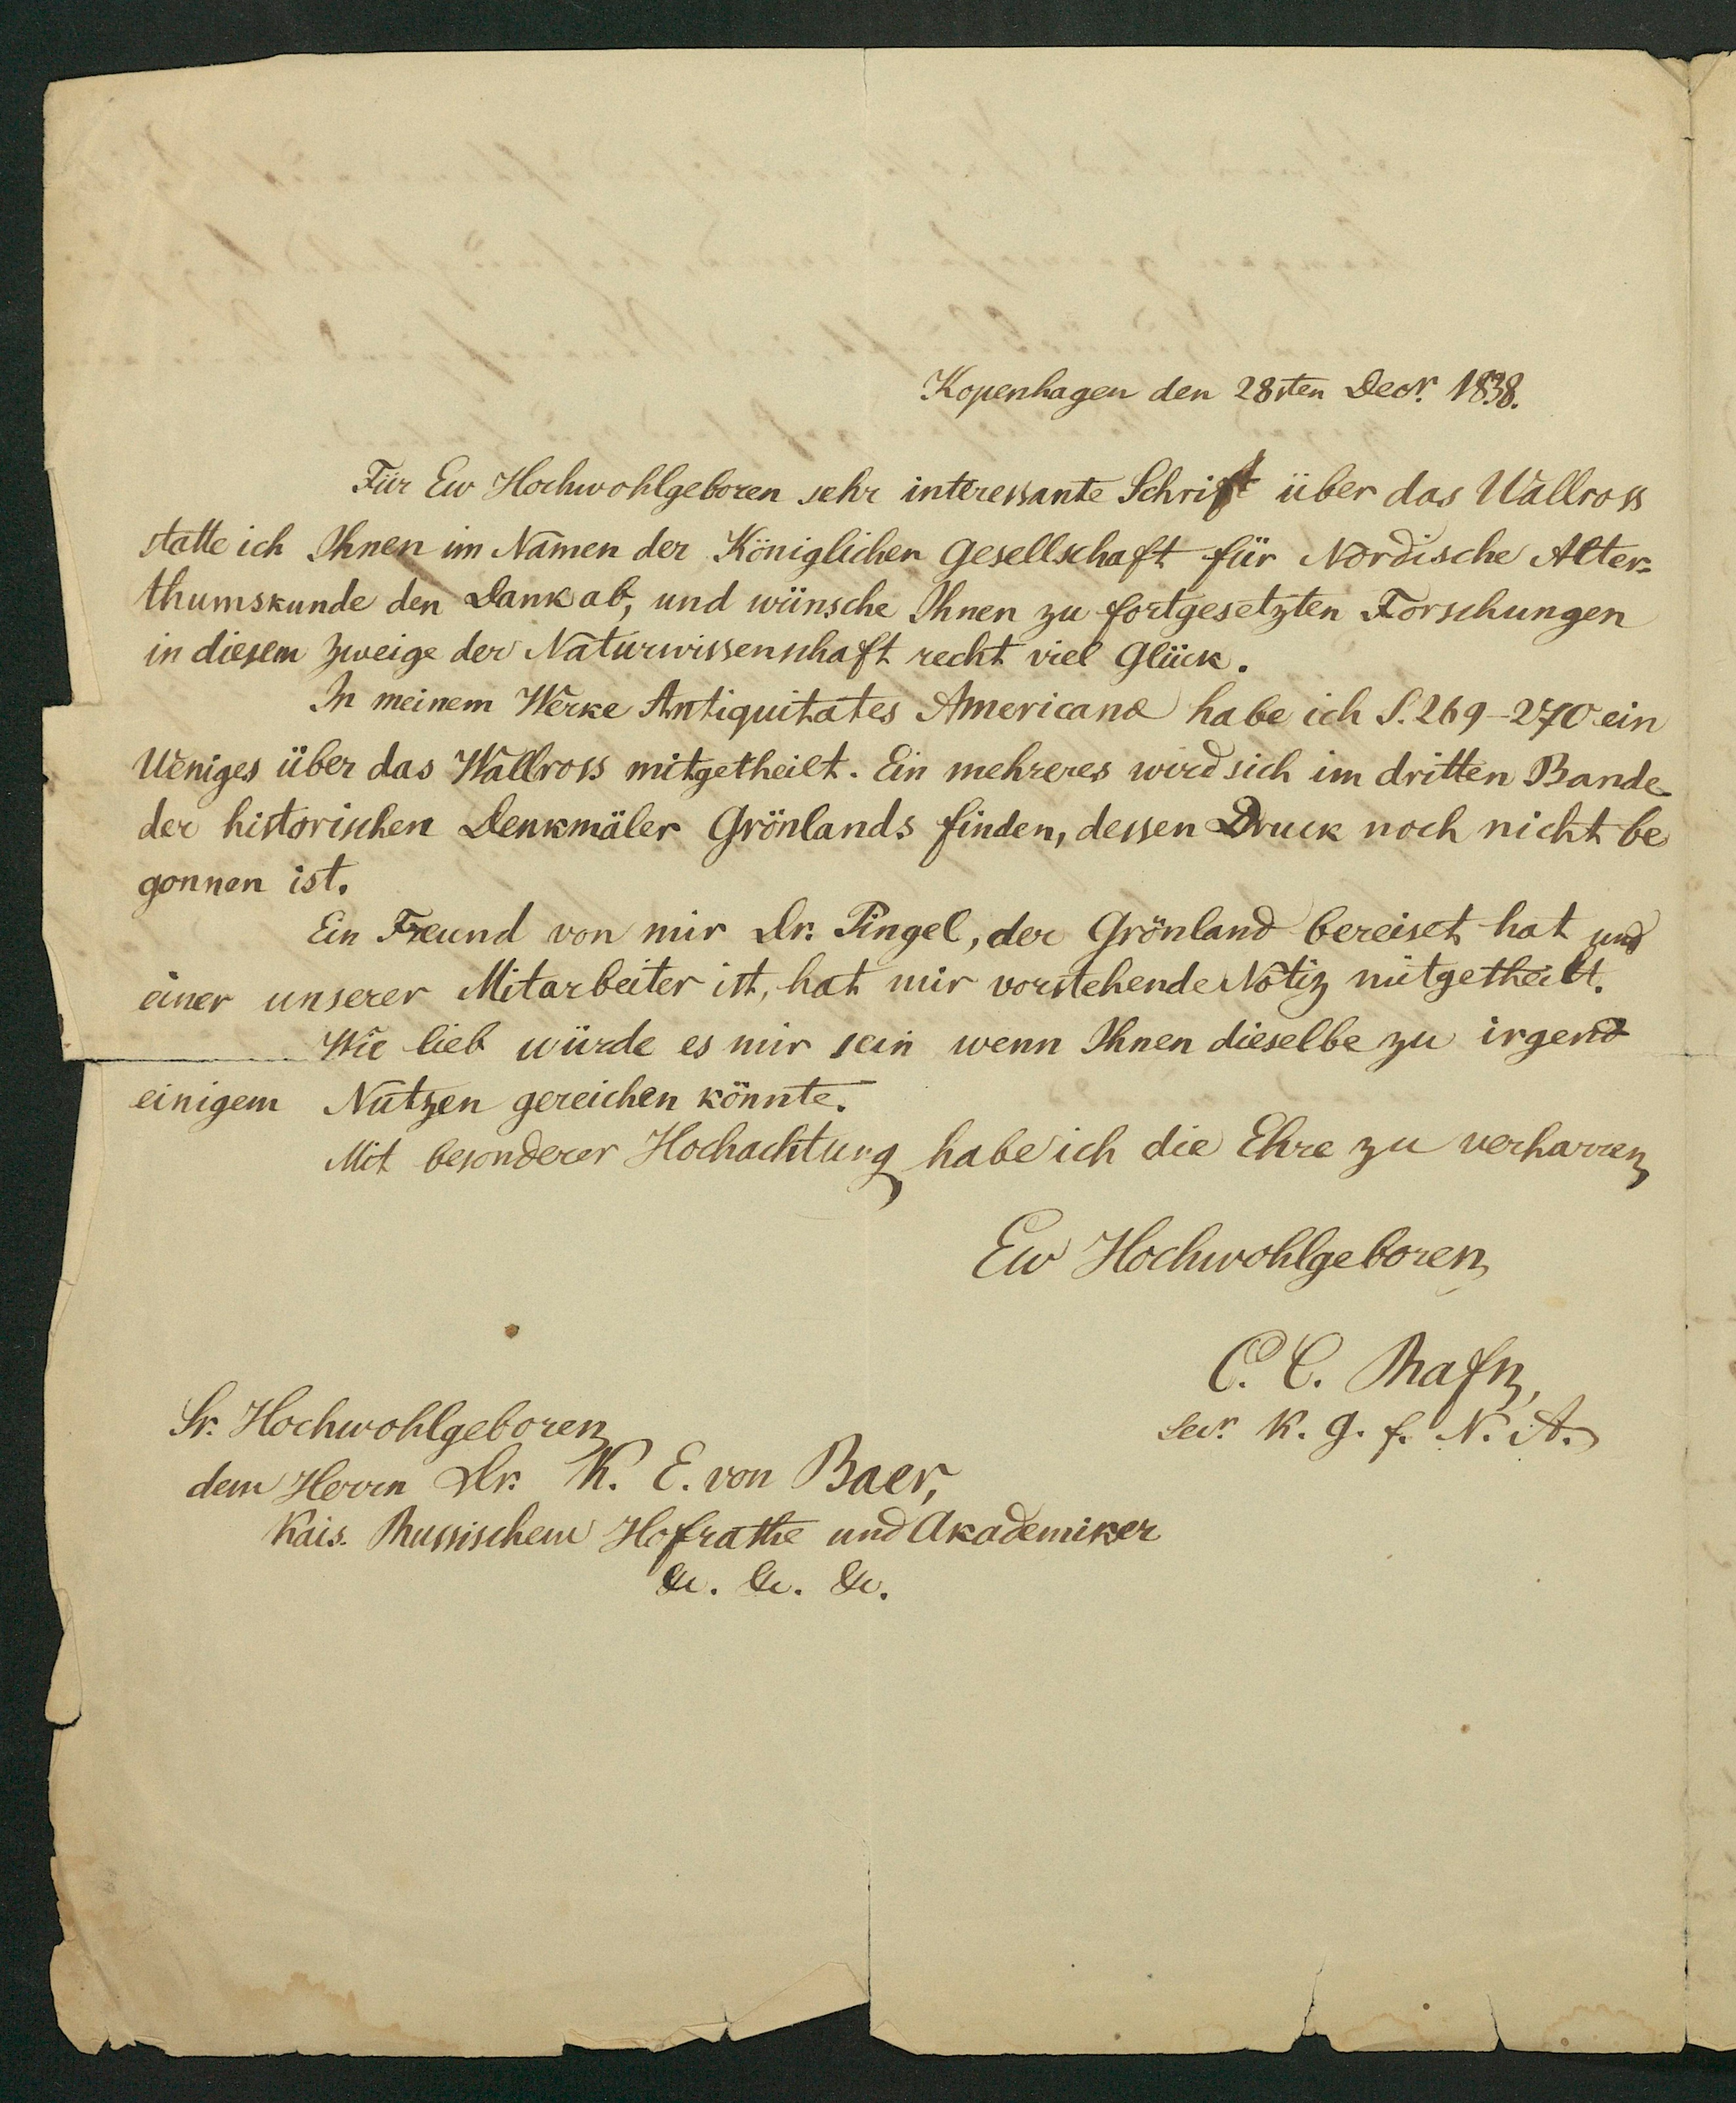 Kopenhagen den 28sten Decr. 1838.
Für Ew Hochwohlgeboren sehr interessante Schrift über das Wallross
statte ich Ihnen im Namen der Königlichen Gesellschaft für Nordische Alter-
thumskunde den Dank ab, und wünsche Ihnen zu fortgesetzten Forschungen
in diesem Zweige der Naturwissenschaft recht viel Glück.
In meinem Werke Antiquitates Americanæ habe ich S. 269-270 ein
Weniges über das Wallross mitgetheilt. Ein mehreres wird sich im dritten Bande
der historischen Denkmäler Grönlands finden, dessen Druck noch nicht be
gonnen ist.
Ein Freund von mir Dr. Pingel, der Grönland bereiset hat und
einer unserer Mitarbeiter ist, hat mir vorstehende Notiz mitgetheilt.
Wie lieb würde es mir sein wenn Ihnen dieselbe zu irgend
einigem Nutzen gereichen könnte.
Mit besonderer Hochachtung habe ich die Ehre zu verharren
Ew Hochwohlgeboren
C. C. Rafn,
Secr. K. G. f. N. A.
Sr. Hochwohlgeboren
dem Herrn Dr. K. E. von Baer,
Kais. Russischem Hofrathe und Akademiker
&c. &c. &c.